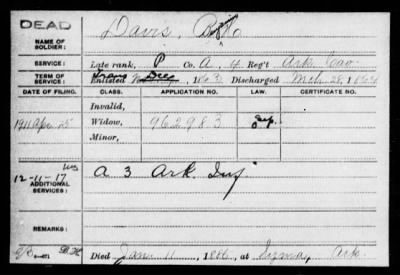 DEAD
NAME OF SOLDIER: Davis, B
SERVICE: Late rank, P Co. A, 4 Reg't Ark. Cav
TERM OF SERVICE: Enlisted Dec 1863 Discharged Mch 28, 1864
DATE OF FILING. CLASS. APPLICATION NO. LAW. CERTIFICATE NO.
Invalid,
1911 Apr 25 Widow, 962983
Minor,
12-11-17
ADDITIONAL SERVICES: A 3 Ark. Inf
REMARKS:
Died Jan 11, 1886, at Ark.